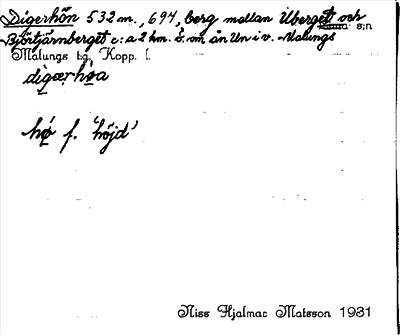 Digerhön 532 m., 694, berg mellan Uberget och
Björtjärnberget c:a 2 km. ö. om ån Un i v. Malungs s:n
Malungs tg, Kopp. l.
dìgærhøa
hǿ f. 'höjd'
Niss Hjalmar Matsson 1931